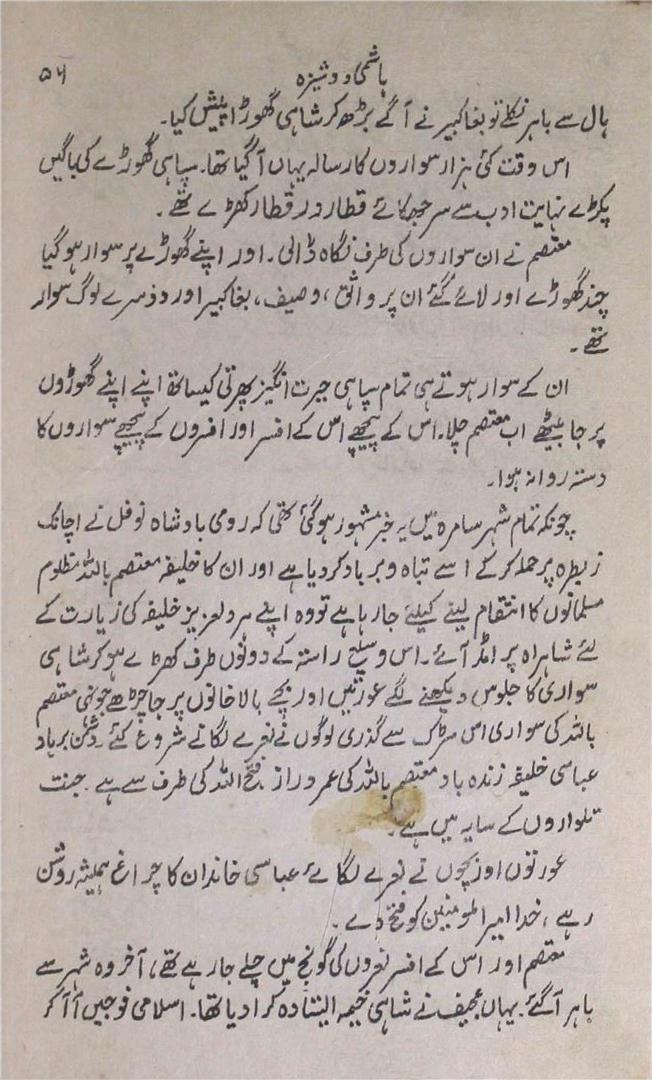 ہاشمی دوشیزہ ۵۶
ہال سے باہر نکلے تو بغا کبیر نے آگے بڑھ کر شاہی گھوڑا پیش کیا۔
اس وقت کئی ہزار سواروں کا رسالہ یہاں آ گیا تھا۔ سپاہی گھوڑے کی باگیں
پکڑے نہایت ادب سے سر جھکائے قطار در قطار کھڑے تھے۔
معتصم نے ان سواروں کی طرف نگاہ ڈالی۔ اور اپنے گھوڑے پر سوار ہو گیا
چند گھوڑے اور لائے گئے ان پر واثق، وصیف، بغا کبیر اور دوسرے لوگ سوار
تھے۔
ان کے سوار ہوتے ہی تمام سپاہی حیرت انگیز پھرتی کیساتھ اپنے اپنے گھوڑوں
پر جا بیٹھے اب معتصم چلا۔ اس کے پیچھے اس کے افسر اور افسروں کے پیچھے سواروں کا
دستہ روانہ ہوا۔
چونکہ تمام شہر سامرہ میں یہ خبر مشہور ہو گئی تھی کہ رومی بادشاہ نوفل نے اچانک
زبطرہ پر حملہ کر کے اسے تباہ و برباد کر دیا ہے اور ان کا خلیفہ معتصم باللہ مظلوم
مسلمانوں کا انتقام لینے کیلئے جا رہا ہے تو وہ اپنے ہر دلعزیز خلیفہ کی زیارت کے
لئے شاہراہ پر امڈ آئے۔ اس وسیع راستہ کے دونوں طرف کھڑے ہو کر شاہی
سواری کا جلوس دیکھنے لگے عورتیں اور بچے بالا خانوں پر جا چڑھے جونہی معتصم
باللہ کی سواری اس سڑک سے گذری لوگوں نے نعرے لگانے شروع کئے۔ دشمن برباد
عباسی خلیفہ زندہ باد معتصم باللہ کی عمر دراز فتح اللہ کی طرف سے ہے۔ جنت
تلواروں کے سایہ میں ہے۔
عورتوں اور بچوں نے نعرے لگائے عباسی خاندان کا چراغ ہمیشہ روشن
رہے، خدا امیر المومنین کو فتح دے۔
معتصم اور اس کے افسر نعروں کی گونج میں چلے جا رہے تھے، آخر وہ شہر سے
باہر آ گئے۔ یہاں عجیف نے شاہی خیمہ الیستادہ کرا دیا تھا۔ اسلامی فوجیں آ آ کر